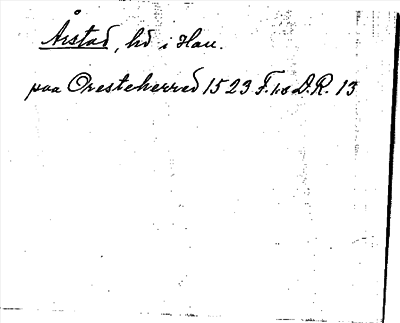 Årstad, hd i Hall.
paa Oresteherred 1523 F.1s D.R. 13